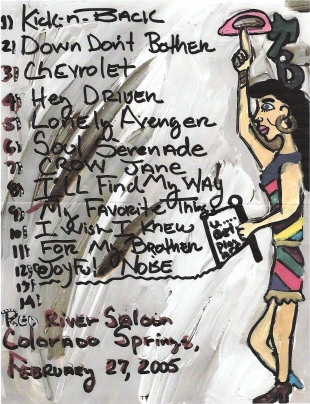 1) Kick-n-Back
2) Down Don't Bother
3) Chevrolet
4) Hey Driver
5) Lonely Avenger
6) Soul Serenade
7) Crow Jane
8) I'll Find My Way
9) My Favorite Thing
10) I Wish I Knew
11) For My Brother
12) Joyful Noise
13)
14)
Red River Saloon
Colorado Springs,
February 27, 2005